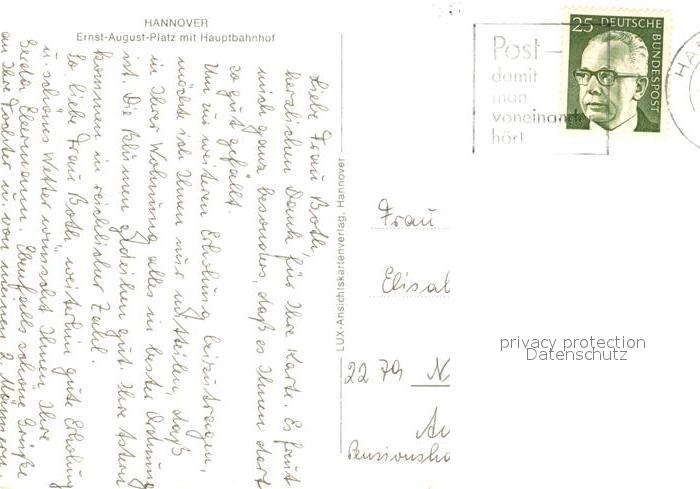 HANNOVER
Ernst-August-Platz mit Hauptbahnhof
Liebe Frau Both,
herzlichen Dank für Ihre Karte. Es freut
mich ganz besonders, daß es Ihnen dort
so gut gefällt.
Um zu weiteren Erholung beizutragen,
möchte ich Ihnen nur mitteilen, daß
in Ihrer Wohnung alles in bester Ordnung
ist. Die Blumen gedeihen gut. Ihre Astern
kommen in reichlicher Zahl.
So, liebe Frau Both, weiterhin gute Erholung
u. schönes Wetter wünscht Ihnen Ihre
Ebenfalls schöne Grüße
an Ihre Tochter u. von meinen 2 Männern.
LUX-Ansichtskartenverlag, Hannover
Post-
damit
man
voneinander
hört
25 DEUTSCHE
BUNDESPOST
HAN
Frau
Elisab
2279 N
Pensionsha
privacy protection
Datenschutz